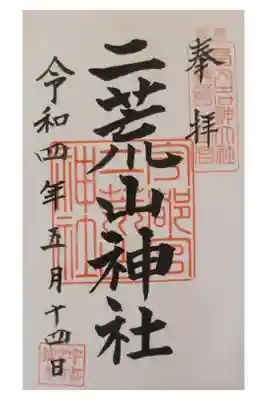 奉拝
二荒山神社
令和四年五月十四日